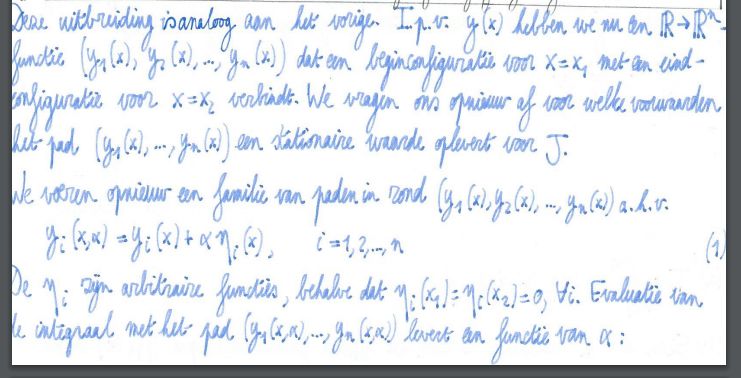 Deze uitbreiding is analoog aan het vorige. I.p.v. y(x) hebben we nu een ℝ→ℝⁿ-
functie (y₁(x), y₂(x), ..., yₙ(x)) dat een beginconfiguratie voor x=x₁ met een eind-
configuratie voor x=x₂ verbindt. We vragen ons opnieuw af voor welke voorwaarden
het pad (y₁(x), ..., yₙ(x)) een stationaire waarde oplevert voor J.
We voeren opnieuw een familie van paden in rond (y₁(x), y₂(x), ..., yₙ(x)) a.h.v.
yᵢ(x,α) = yᵢ(x) + αηᵢ(x), i=1,2,...,n (1)
De ηᵢ zijn arbitraire functies, behalve dat ηᵢ(x₁)=ηᵢ(x₂)=0, ∀i. Evaluatie van
de integraal met het pad (y₁(x,α), ..., yₙ(x,α)) levert een functie van α: